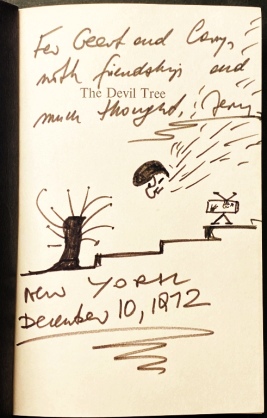 For Geert and Cary,
with friendship and
The Devil Tree
much thought, Jerzy
NEW YORK
December 10, 1972